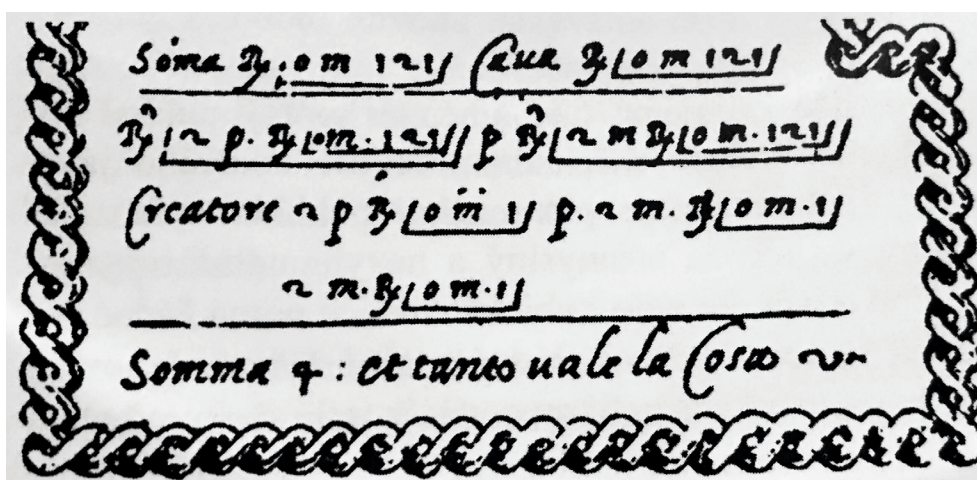 Soma ℞ ⌊0 m 121⌋ Caua ℞ ⌊0 m 121⌋
℞³ ⌊2 p. ℞ ⌊0 m. 121⌋⌋ p ℞³ ⌊2 m ℞ ⌊0 m. 121⌋⌋
Creatore 2 p ℞ ⌊0 m 1⌋ p. 2 m. ℞ ⌊0 m. 1⌋
2 m. ℞ ⌊0 m. 1⌋
Somma 4 : et tanto uale la Cosa